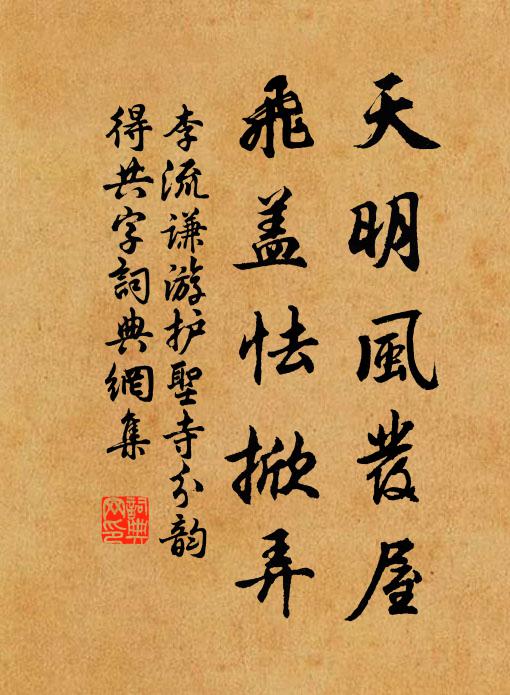 天明風發屋
飛盖怯掀弄
李流谦游护聖寺分韵
得共字詞典網集
詞典
网印